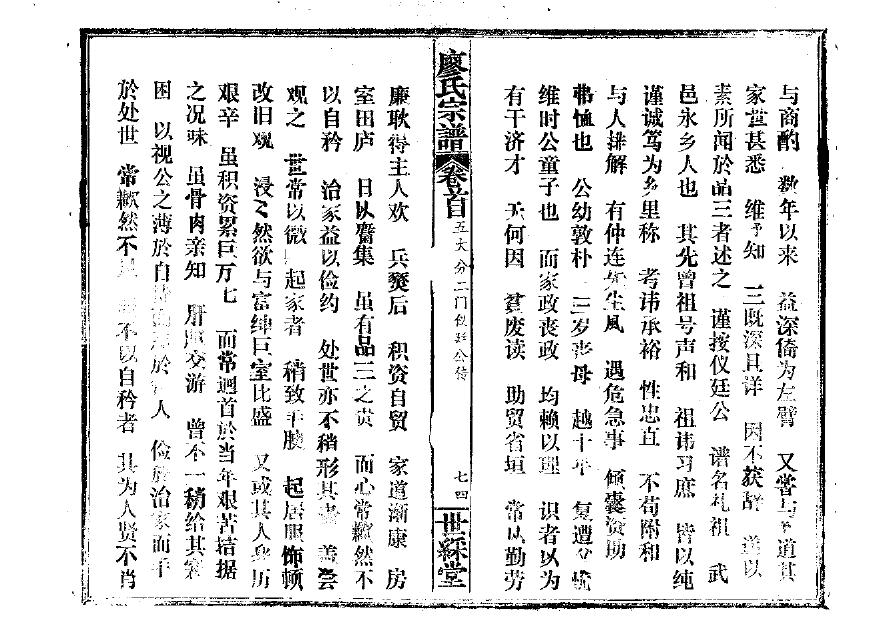 与商酌 数年以来 益深倚为左臂 又尝与 道其
家世甚悉 维予知 三既深且详 因不获辞 谨以
素所闻於品三者述之 谨按仪廷公 谱名礼祖 武
邑永乡人也 其先曾祖号声和 祖讳习庶 皆以纯
谨诚笃为乡里称 考讳承裕 性忠直 不苟附和
与人排解 有仲连先生风 遇危急事 倾囊资助
弗恤也 公幼敦朴 三岁丧母 越十年 复遭父
维时公童子也 而家政丧政 均赖以理 识者以为
有干济才 无何因 贫废读 助贸省垣 常以勤劳
廖氏宗譜 卷首 五大分二门仪廷公传 七四 世綵堂
廉耿得主人欢 兵燹后 积资自贸 家道渐康 房
室田庐 日以麕集 虽有品三之贡 而心常歉然不
以自矜 治家益以俭约 处世亦不稍形其 善尝
观之 世常以微 起家者 稍致丰腴 起居服饰顿
改旧观 浸之然欲与富绅巨室比盛 又或其人身历
艰辛 虽积资累巨万七 而常迴首於当年艰苦拮据
之况味 虽骨肉亲知 朋 交游 曾不一稍给其窘
困 以视公之薄於自 於 人 俭於治家而丰
於处世 常歉然不 不以自矜者 其为人贤不肖